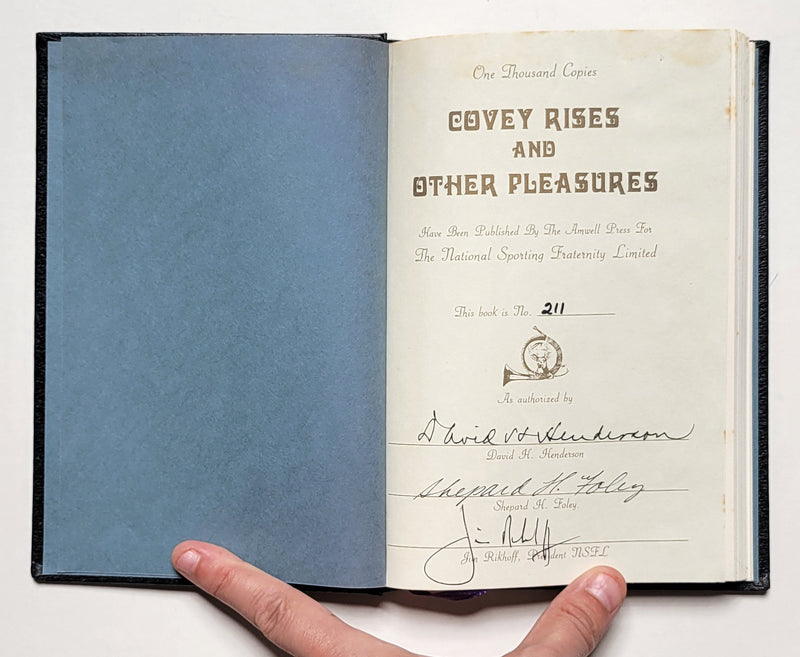 One Thousand Copies
COVEY RISES
AND
OTHER PLEASURES
Have Been Published By The Amwell Press For
The National Sporting Fraternity Limited
This book is No. 211
As authorized by
David H Henderson
David H. Henderson
Shepard H. Foley
Shepard H. Foley
Jim Rikhoff
Jim Rikhoff, President NSFL